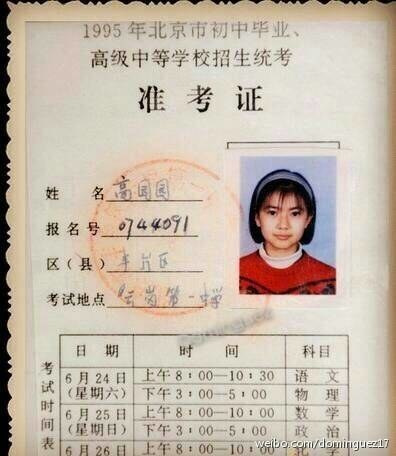 1995年北京市初中毕业、
高级中等学校招生统考
准考证
姓 名 高圆圆
报名号 0744091
区(县) 丰台区
考试地点 云岗第一中学
考试时间表
日 期 时 间 科目
6月24日 (星期六) 上午8:00—10:30 语文
下午3:00—5:00 物理
6月25日 (星期日) 上午8:00—10:00 数学
下午3:00—5:00 政治
6月26日 上午8:00—10:00 化学
weibo.com/dominguez17